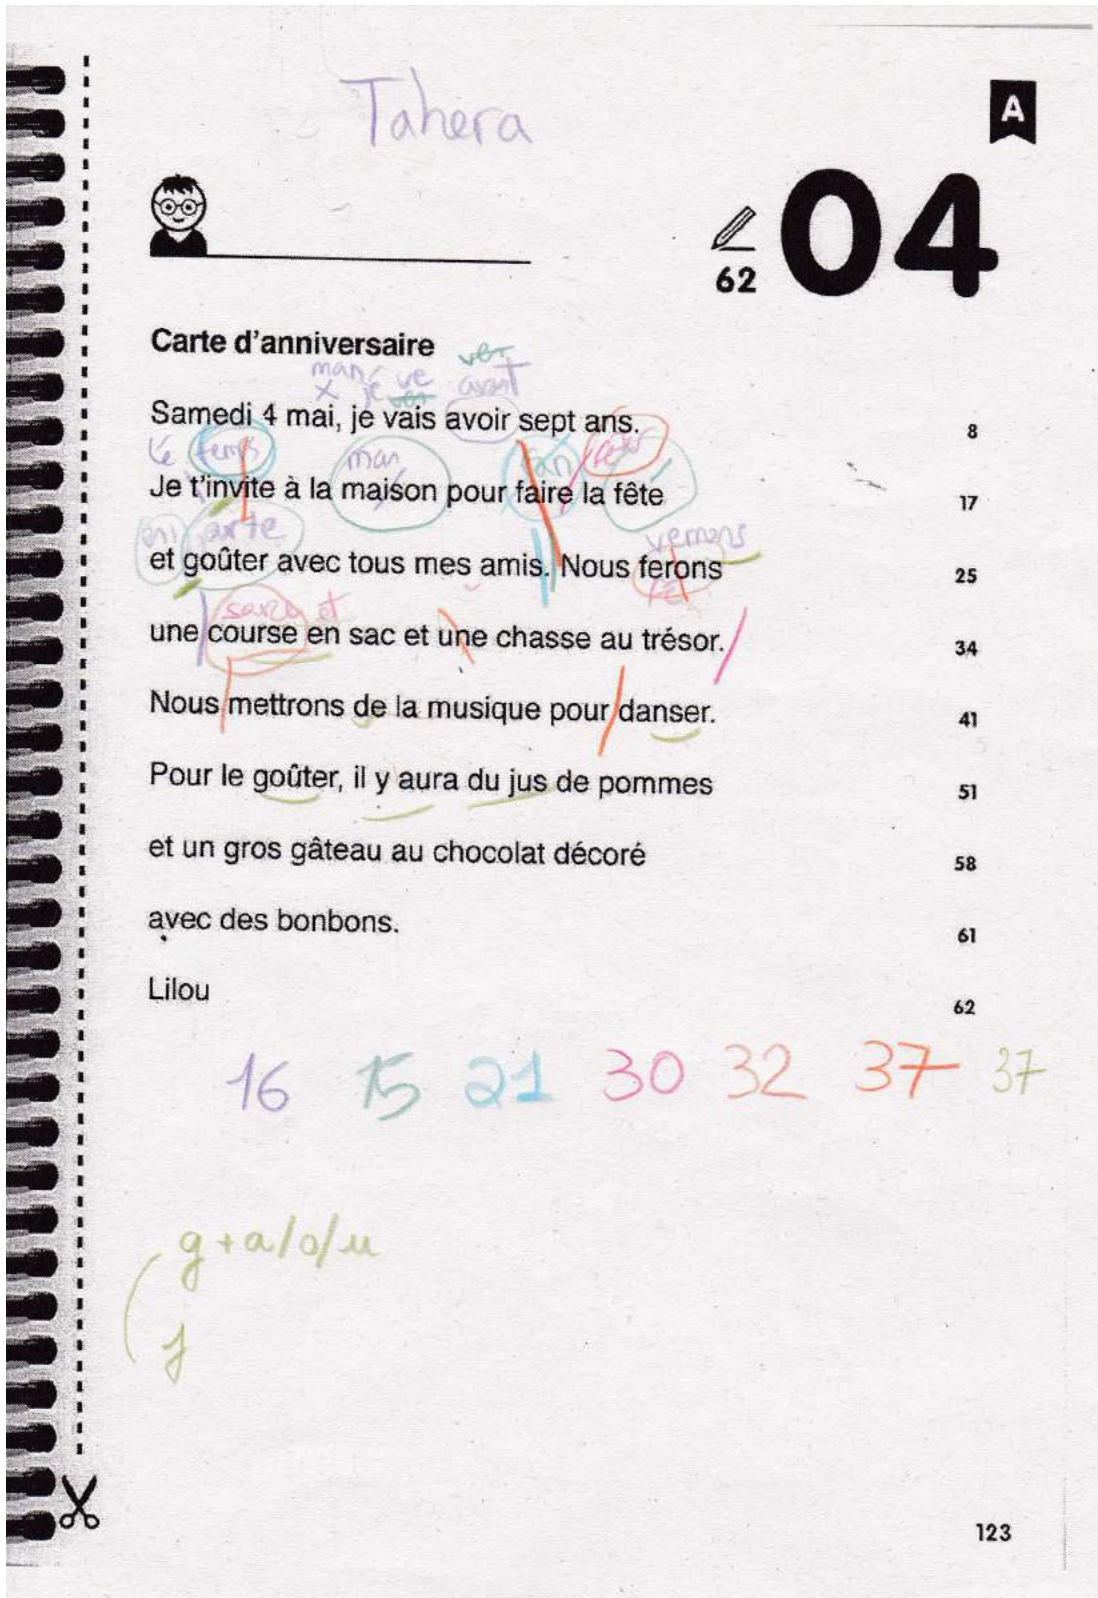 Tahera
A
04
62
Carte d'anniversaire
ver
man je ve avant
x ver
Samedi 4 mai, je vais avoir sept ans. 8
temps man
Je t'invite à la maison pour faire la fête 17
arte
et goûter avec tous mes amis. Nous ferons 25
une course en sac et une chasse au trésor. 34
Nous mettrons de la musique pour danser. 41
Pour le goûter, il y aura du jus de pommes 51
et un gros gâteau au chocolat décoré 58
avec des bonbons. 61
Lilou 62
16 15 21 30 32 37 37
g+a/o/u
j
123